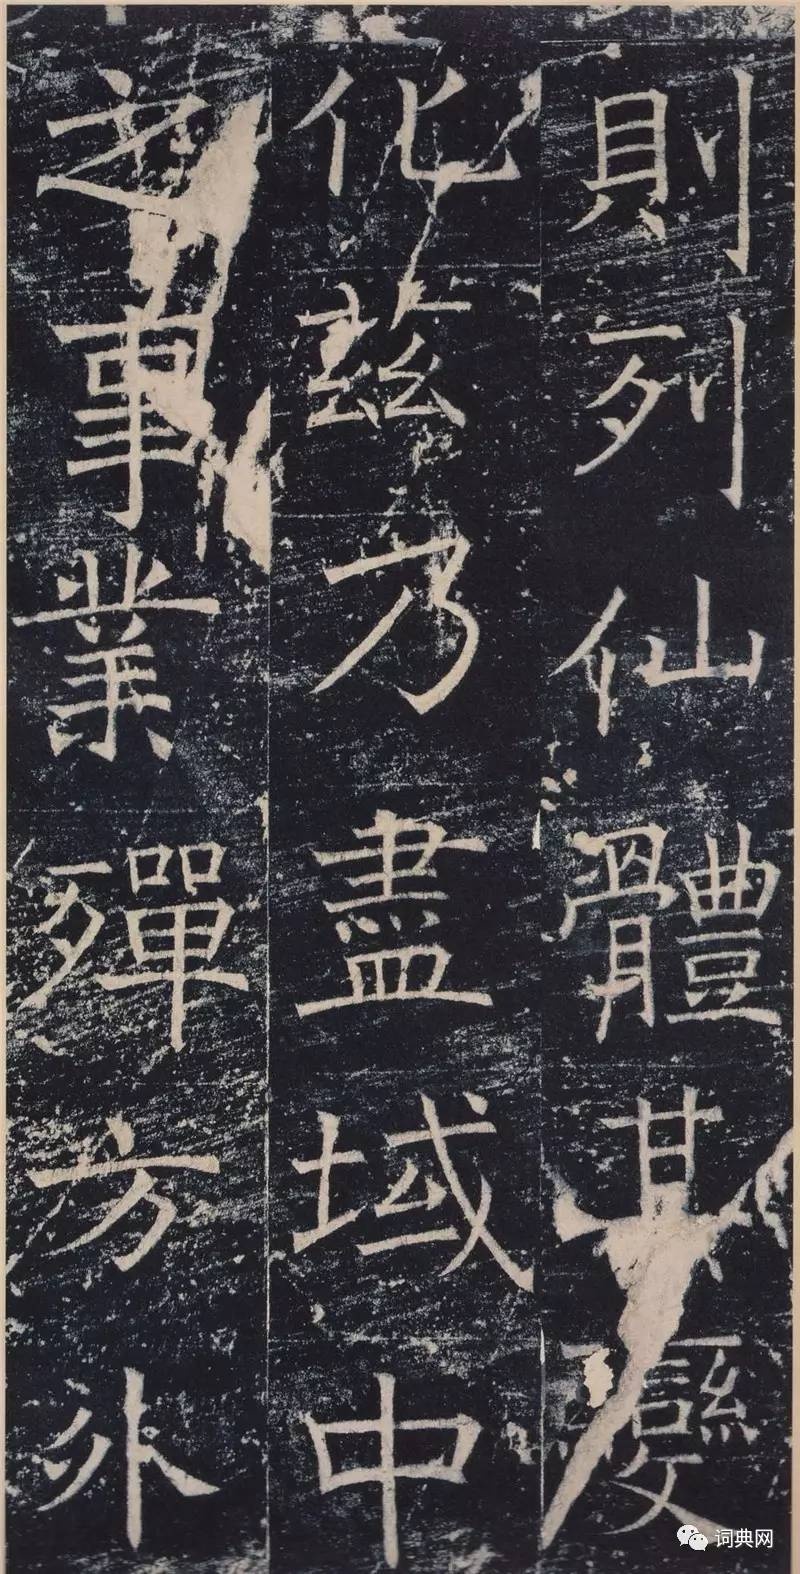 則列仙體其變
化茲乃盡域中
之事業殫方外
词典网